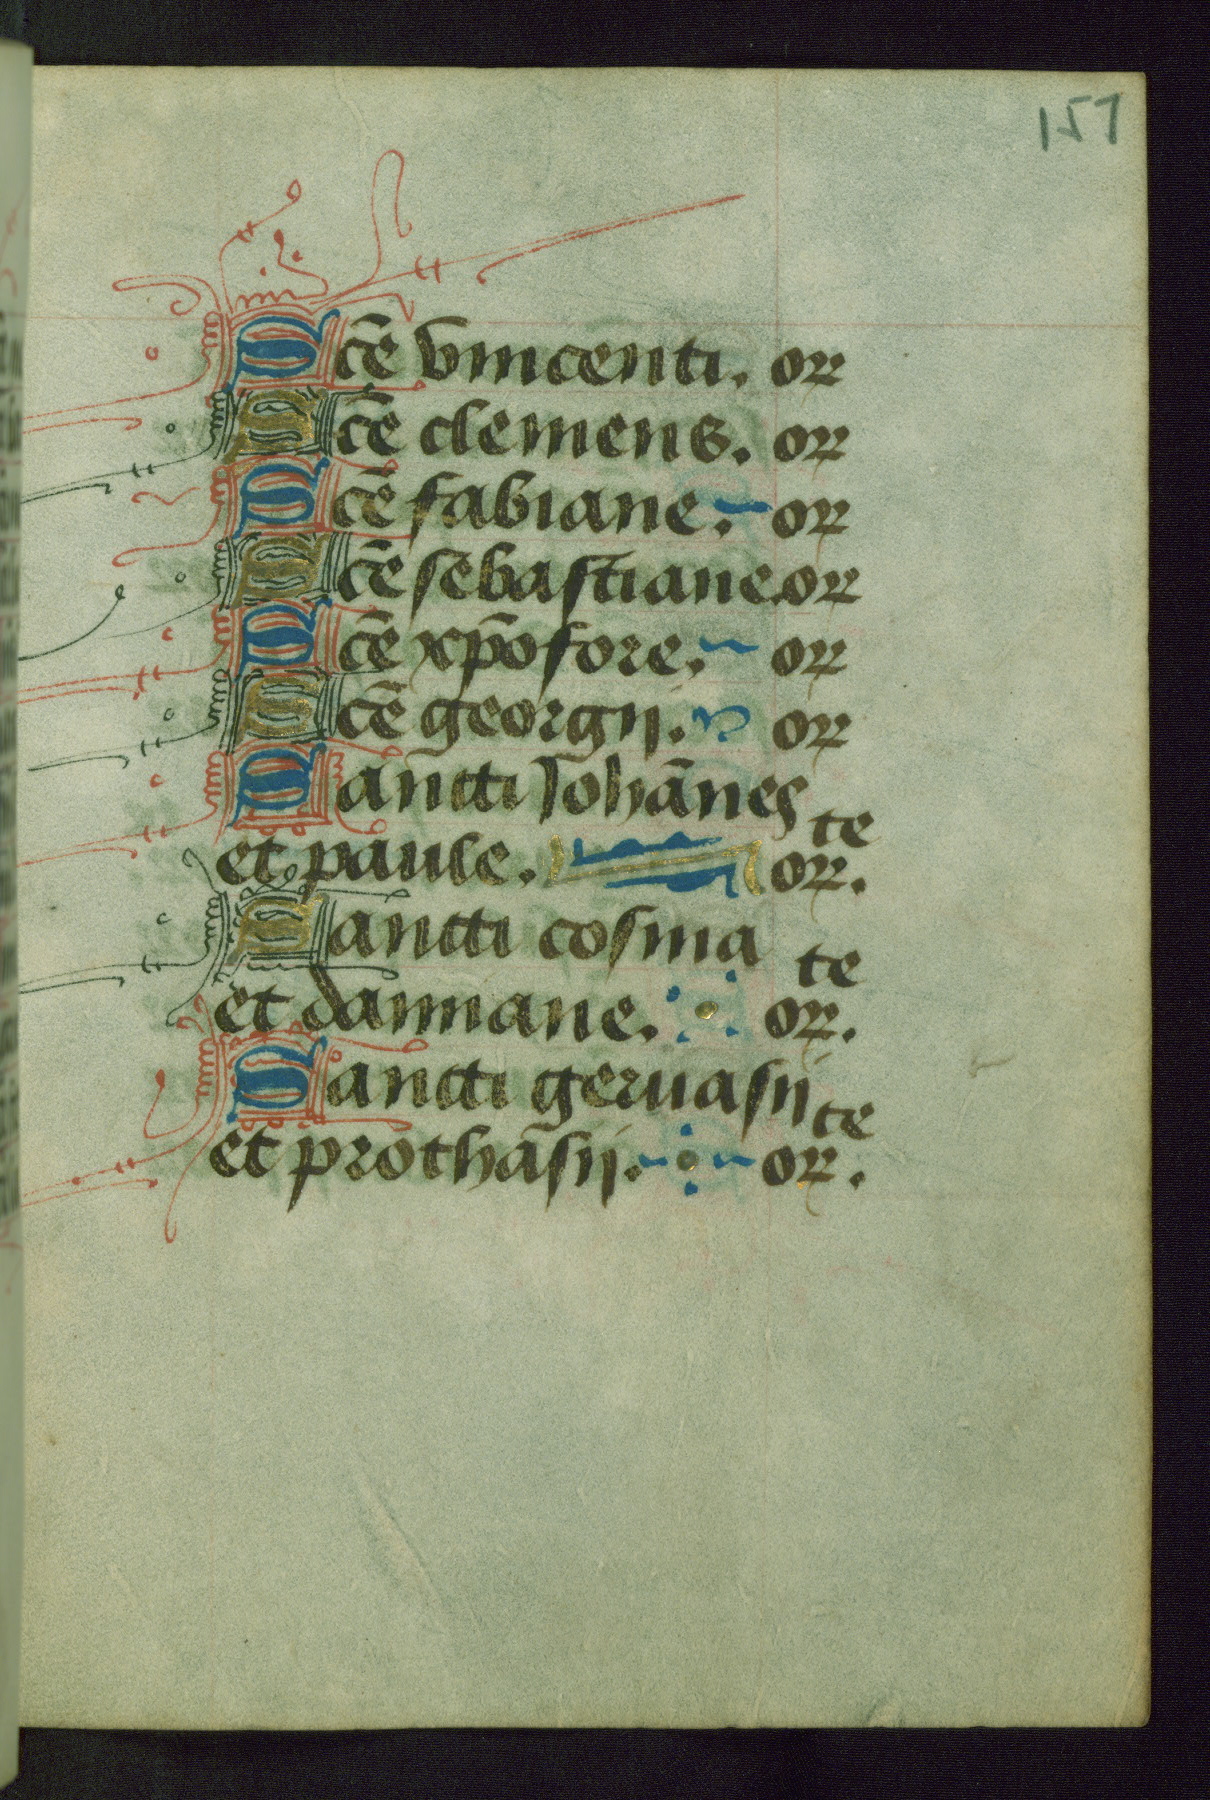 157
Sc̄e vincenti. or
Sc̄e clemens. or
Sc̄e fabiane. or
Sc̄e sebastiane. or
Sc̄e xp̄ofore. or
Sc̄e georgij. or
Sancti Johānes
et paule. te or.
Sancti cosma
et damiane. te or.
Sancti geruasij
et prothasij. te or.